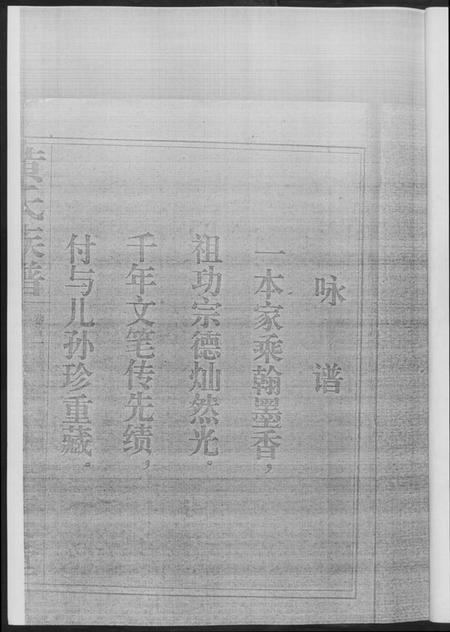 咏谱
一本家乘翰墨香，
祖功宗德灿然光。
千年文笔传先绩，
付与儿孙珍重藏。
黄氏族谱